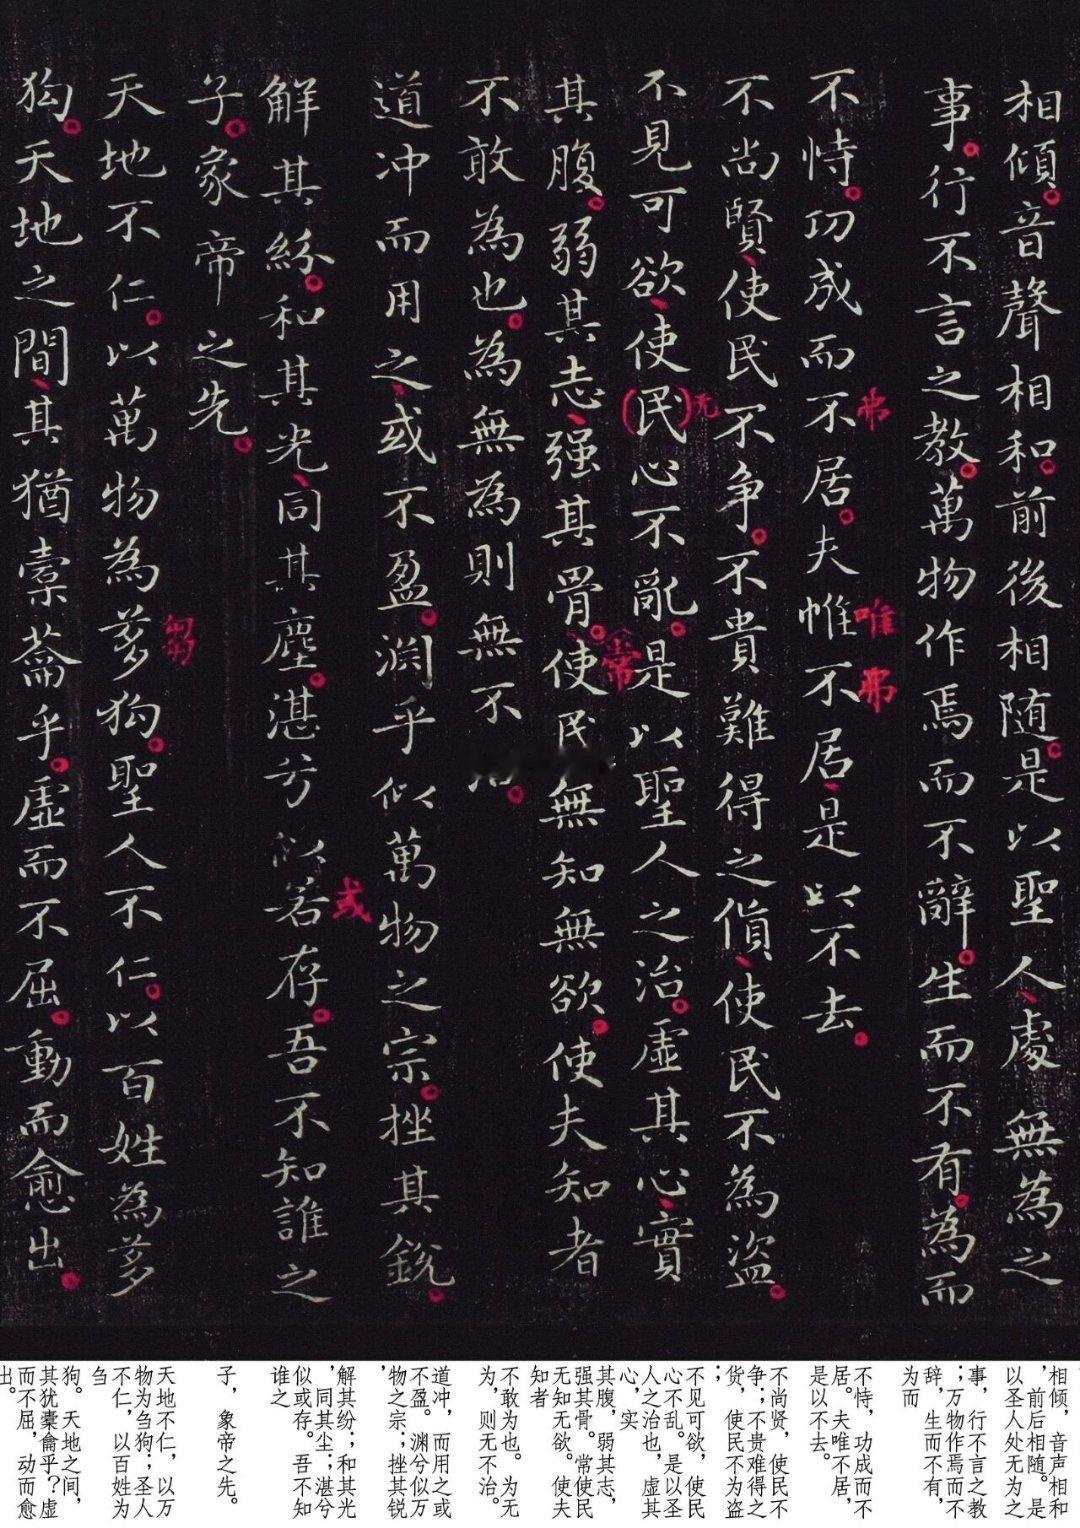 相傾。音聲相和。前後相随。是以聖人、處無為之
事。行不言之教。萬物作焉而不辭。生而不有。為而
不恃。功成而不居。夫惟不居、是以不去。
弗
唯
弗
不尚賢、使民不争。不貴難得之貨、使民不為盗。
不見可欲、使(民)心不亂。是以聖人之治。虛其心、實
无
其腹。弱其志、强其骨。使民無知無欲。使夫知者
常
不敢為也。為無為則無不治。
道冲而用之、或不盈。渊乎似萬物之宗。挫其銳。
解其紛。和其光、同其塵。湛兮似若存。吾不知誰之
或
子。象帝之先。
天地不仁。以萬物為芻狗。聖人不仁。以百姓為芻
芻
狗。天地之間、其猶橐籥乎。虛而不屈。動而愈出。
相倾，音声相和
，前后相随。是
以圣人处无为之
事，行不言之教
；万物作焉而不
辞，生而不有，
为而
不恃，功成而不
居。夫唯不居，
是以不去。
不尚贤，使民不
争；不贵难得之
货，使民不为盗
；
不见可欲，使民
心不乱。是以圣
人之治也，虚其
心，实
其腹，弱其志，
强其骨。常使民
无知无欲。使夫
知者
不敢为也。为无
为，则无不治。
道冲，而用之或
不盈。渊兮似万
物之宗；挫其锐
，
解其纷；和其光
，同其尘；湛兮
似或存。吾不知
谁之
子，象帝之先。
天地不仁，以万
物为刍狗；圣人
不仁，以百姓为
刍
狗。天地之间，
其犹橐龠乎？虚
而不屈，动而愈
出。